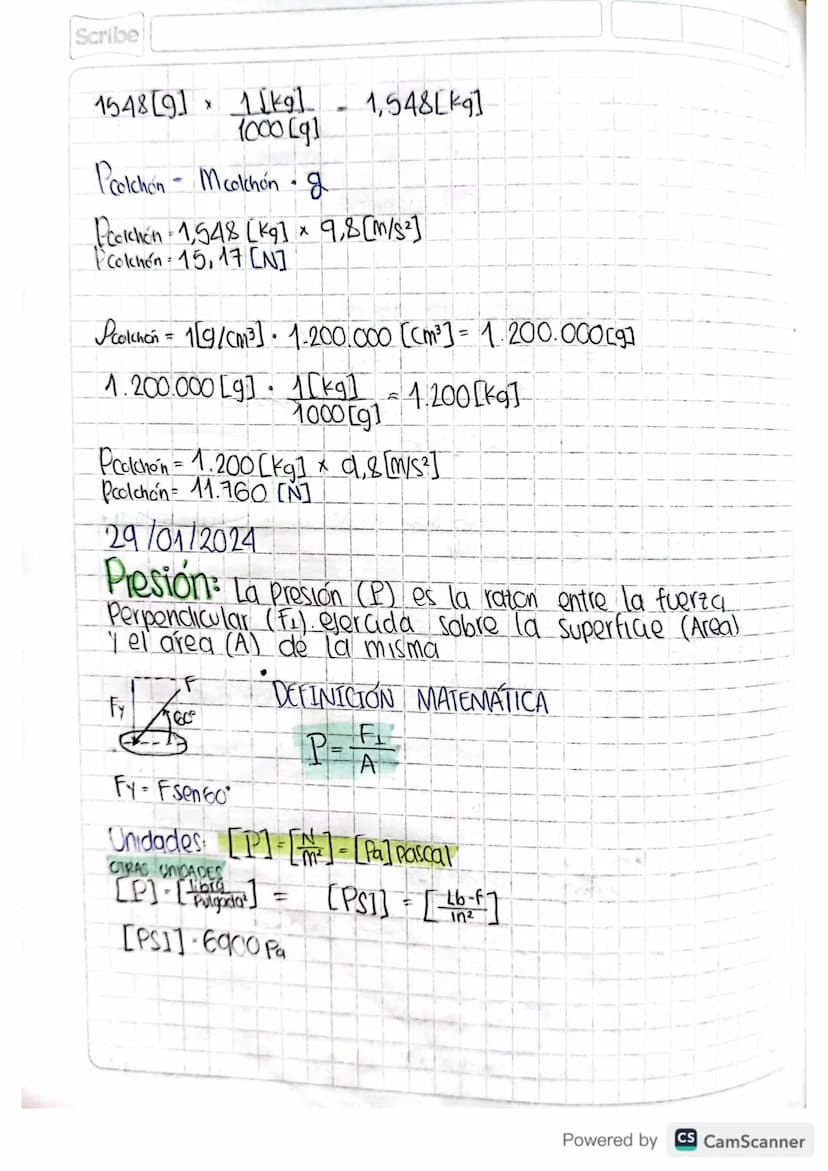 Scribe
1548[g] × 1[kg]/1000[g] = 1,548[kg]
Pcolchón = Mcolchón · g
Pcolchón = 1,548 [kg] × 9,8[m/s²]
Pcolchón = 15,17[N]
Pcolchón = 1[g/cm³] · 1.200.000 [cm³] = 1.200.000[g]
1.200.000[g] · 1[kg]/1000[g] = 1.200[kg]
Pcolchón = 1.200[kg] × 9,8[m/s²]
Pcolchón = 11.760 [N]
29/01/2024
Presión: La presión (P) es la razon entre la fuerza
Perpendicular (F⊥) ejercida sobre la superficie (Area)
y el área (A) de la misma
F
Fy
60°
• DEFINICIÓN MATEMÁTICA
P = F⊥/A
Fy = Fsen60°
Unidades: [P] = [N/m²] = [Pa] pascal
OTRAS UNIDADES
[P] = [Libra/Pulgada²] = [PSI] = [Lb-f/in²]
[PSI] · 6900 Pa
Powered by CS CamScanner